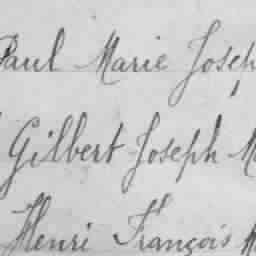 Paul Marie Josep
Gilbert Joseph M
Henri François M